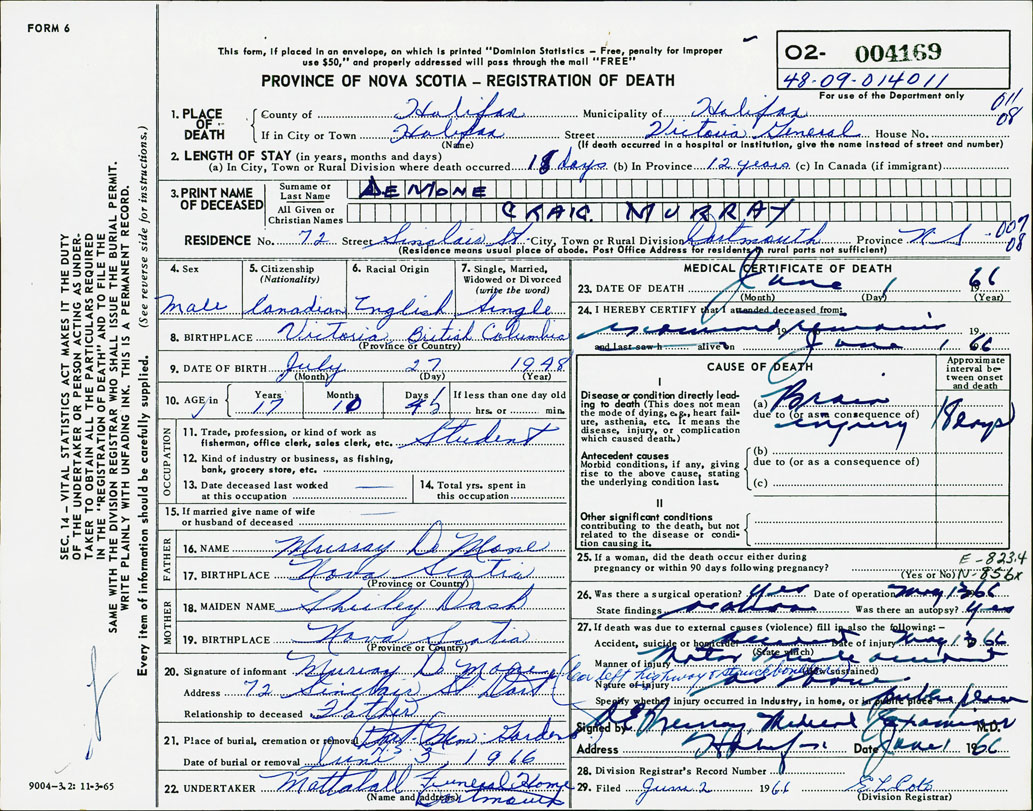 FORM 6
This form, if placed in an envelope, on which is printed "Dominion Statistics – Free, penalty for improper
use $50," and properly addressed will pass through the mail "FREE"
PROVINCE OF NOVA SCOTIA – REGISTRATION OF DEATH
O2- 004169
48-09-014011
For use of the Department only
011
08
1. PLACE OF DEATH
County of Halifax Municipality of Halifax
If in City or Town Halifax Street Victoria General House No.
(Name) (If death occurred in a hospital or institution, give the name instead of street and number)
2. LENGTH OF STAY (in years, months and days)
(a) In City, Town or Rural Division where death occurred 18 days (b) In Province 12 years (c) In Canada (if immigrant)
3. PRINT NAME OF DECEASED
Surname or Last Name DEMONE
All Given or Christian Names CRAIG MURRAY
RESIDENCE No. 72 Street Sinclair St City, Town or Rural Division Dartmouth Province N S
(Residence means usual place of abode. Post Office Address for residents of rural parts not sufficient)
007
08
4. Sex
Male
5. Citizenship
(Nationality)
Canadian
6. Racial Origin
English
7. Single, Married,
Widowed or Divorced
(write the word)
Single
8. BIRTHPLACE Victoria British Columbia
(Province or Country)
9. DATE OF BIRTH July 27 1948
(Month) (Day) (Year)
10. AGE in Years Months Days If less than one day old
17 10 hrs. or min.
OCCUPATION
11. Trade, profession, or kind of work as
fisherman, office clerk, sales clerk, etc. Student
12. Kind of industry or business, as fishing,
bank, grocery store, etc.
13. Date deceased last worked
at this occupation
14. Total yrs. spent in
this occupation
15. If married give name of wife
or husband of deceased
FATHER
16. NAME Murray De Mone
17. BIRTHPLACE Nova Scotia
(Province or Country)
MOTHER
18. MAIDEN NAME Shirley Dash
19. BIRTHPLACE Nova Scotia
(Province or Country)
20. Signature of informant Murray De Mone
Address 72 Sinclair St Dart
Relationship to deceased Father
21. Place of burial, cremation or removal Dart Mem. Gardens
Date of burial or removal June 3 1966
22. UNDERTAKER Mattatall Funeral Home
(Name and address) Dartmouth
MEDICAL CERTIFICATE OF DEATH
23. DATE OF DEATH June 1 1966
(Month) (Day) (Year)
24. I HEREBY CERTIFY that I attended deceased from:
examined remains 19 19
and last saw h alive on June 1, 1966
CAUSE OF DEATH
Approximate interval between onset and death
I
Disease or condition directly leading
to death (This does not mean
the mode of dying, e.g., heart failure,
asthenia, etc. It means the
disease, injury, or complication
which caused death.)
(a) Brain
due to (or as a consequence of)
injury
18 days
Antecedent causes
Morbid conditions, if any, giving
rise to the above cause, stating
the underlying condition last.
(b)
due to (or as a consequence of)
(c)
II
Other significant conditions
contributing to the death, but not
related to the disease or condition
causing it.
25. If a woman, did the death occur either during
pregnancy or within 90 days following pregnancy?
(Yes or No)
E-823.4
N-856x
26. Was there a surgical operation? Yes Date of operation May 13 66
State findings as above Was there an autopsy? Yes
27. If death was due to external causes (violence) fill in also the following: –
Accident, suicide or homicide accident Date of injury May 13 66
(State which)
Manner of injury Motor vehicle accident
(How sustained)
Car left highway & struck
Nature of injury as above
Specify whether injury occurred in Industry, in home, or in public place public place
Signed by Murray, Medical Examiner M.D.
Address Halifax Date June 1 1966
28. Division Registrar's Record Number
29. Filed June 2 1966
(Division Registrar)
SEC. 14 – VITAL STATISTICS ACT MAKES IT THE DUTY
OF THE UNDERTAKER OR PERSON ACTING AS UNDERTAKER
TO OBTAIN ALL THE PARTICULARS REQUIRED
IN THE "REGISTRATION OF DEATH" AND TO FILE THE
SAME WITH THE DIVISION REGISTRAR WHO SHALL ISSUE THE BURIAL PERMIT.
WRITE PLAINLY WITH UNFADING INK. THIS IS A PERMANENT RECORD.
Every item of information should be carefully supplied. (See reverse side for instructions.)
9004–3.2: 11-3-65